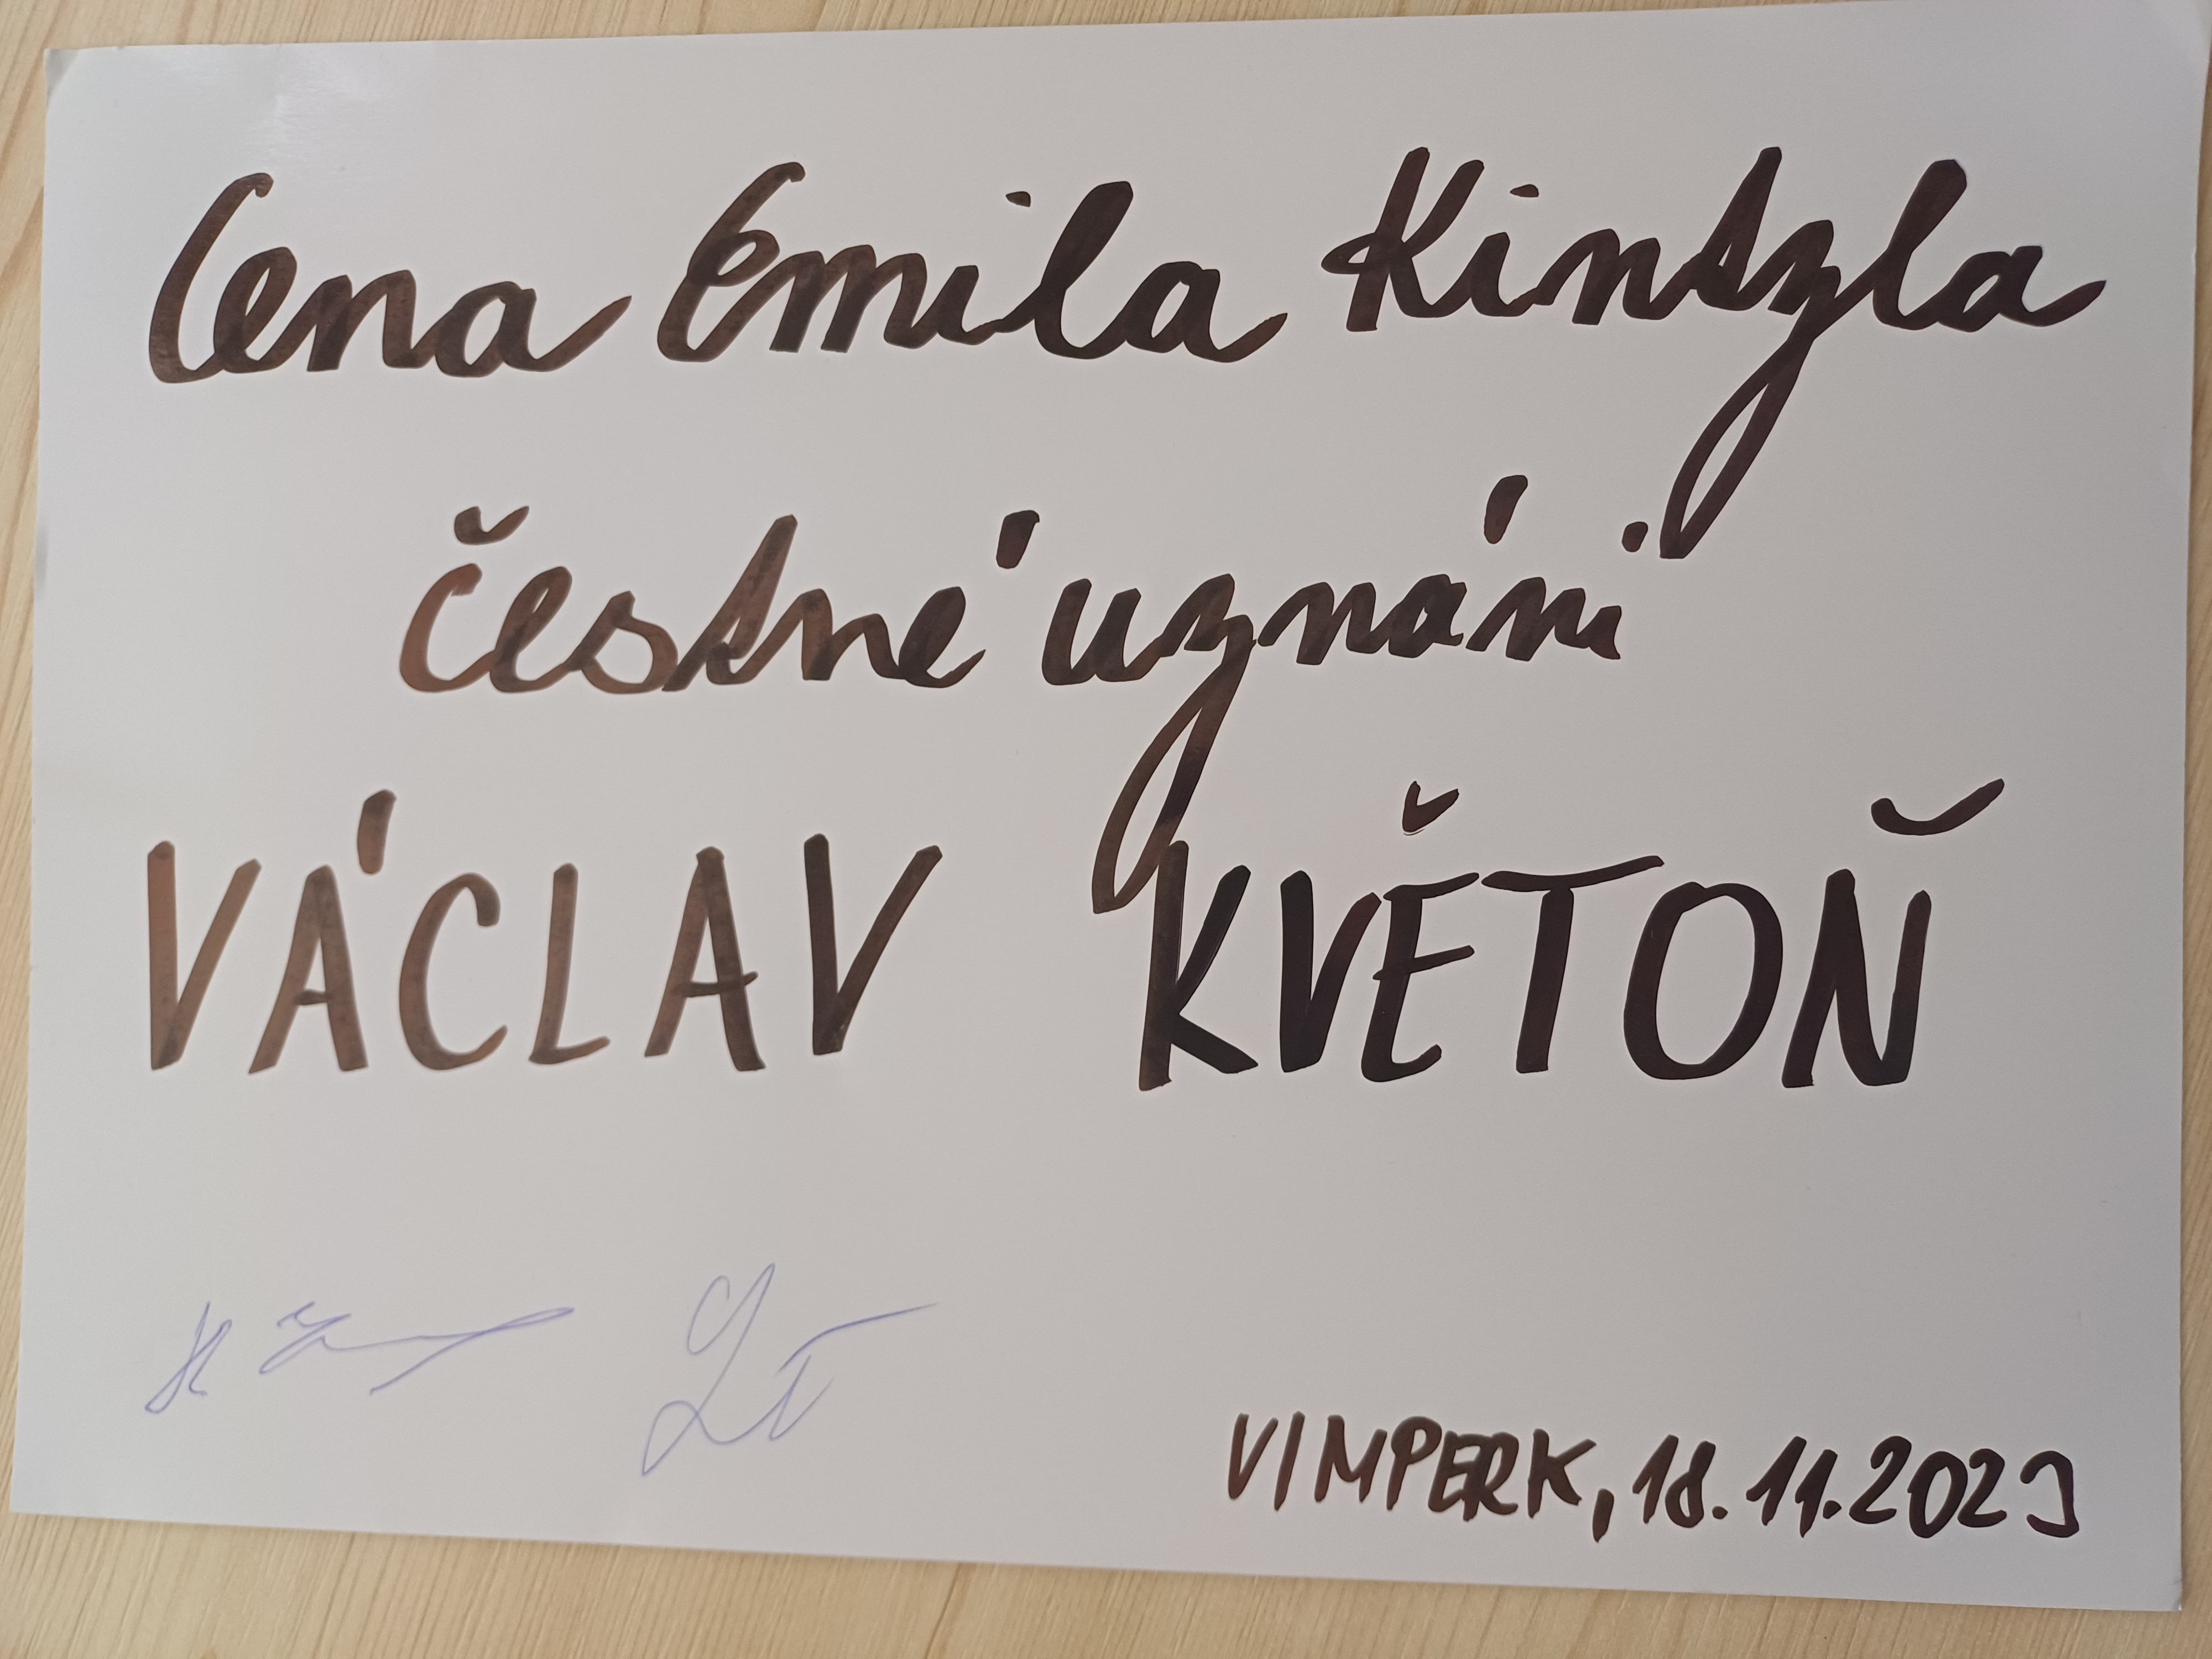 Cena Emila Kintzla
čestné uznání
VÁCLAV KVĚTOŇ
VIMPERK, 18.11.2023